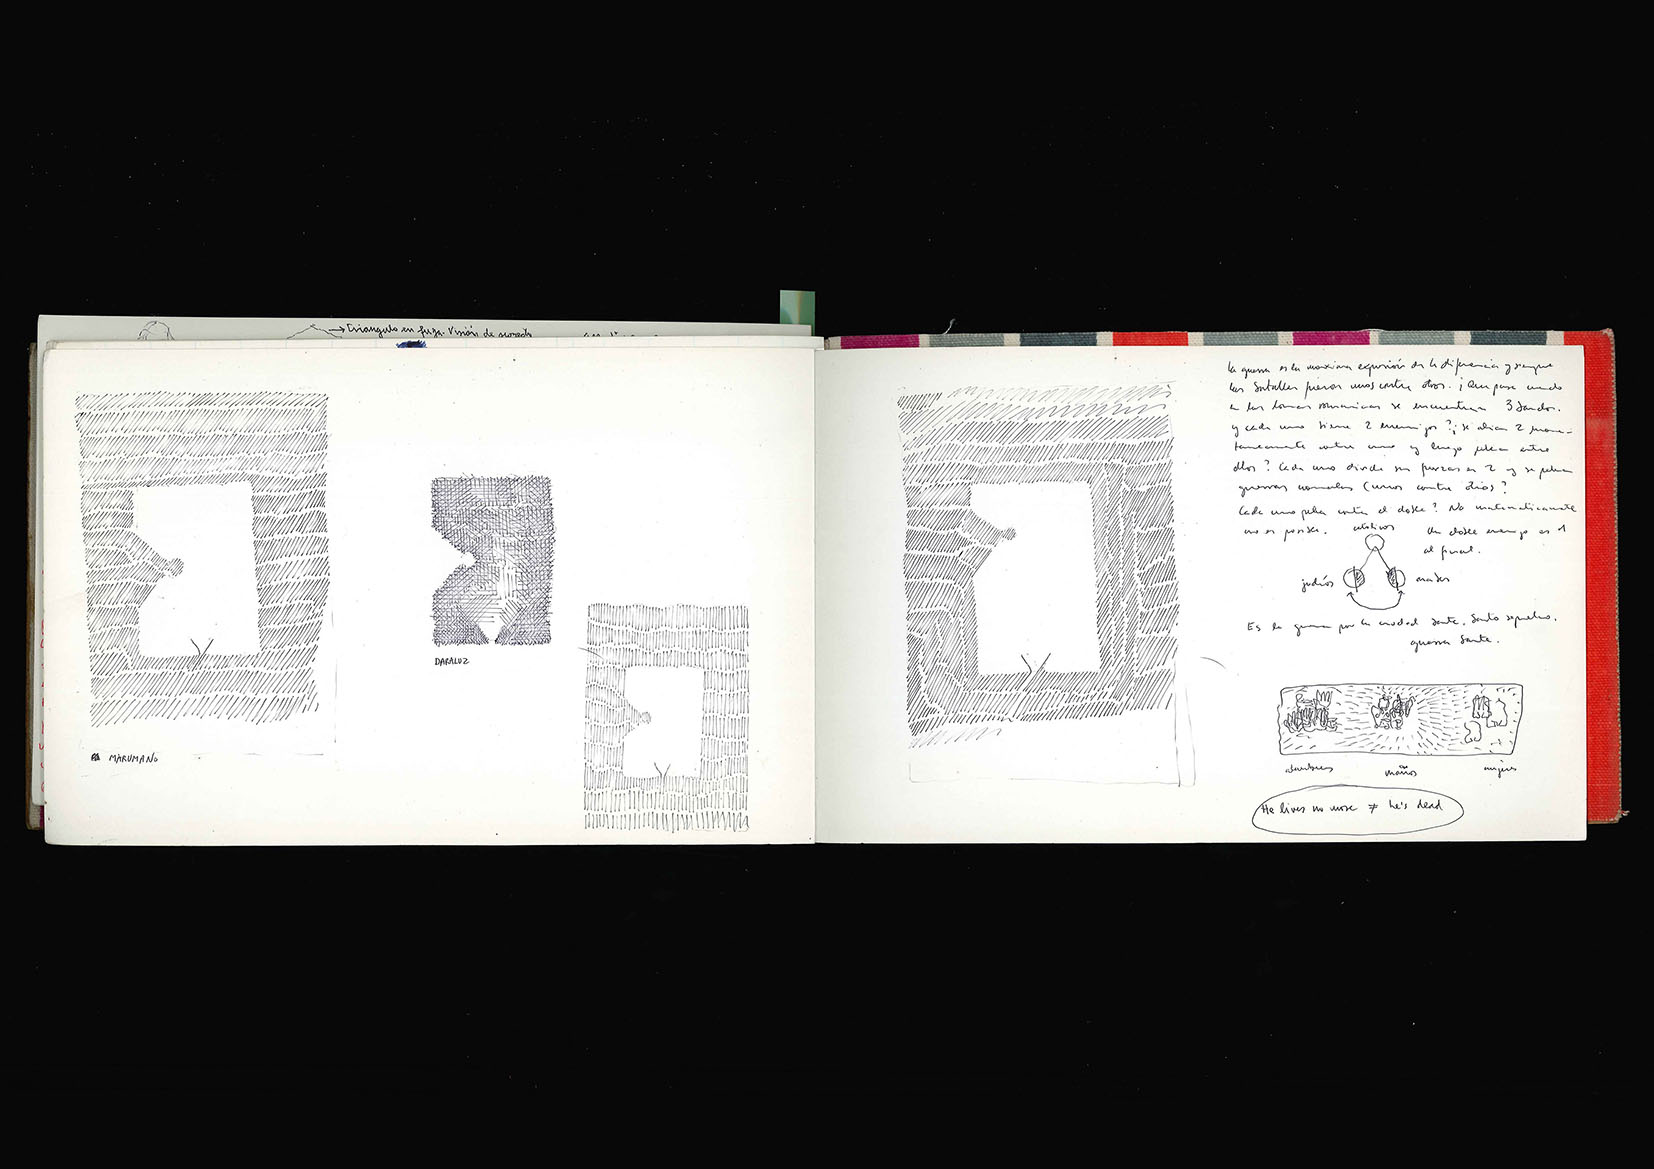 → Triangulo en fuga. Visión de
MARUMANO
DARALUZ
la guerra es la maxima expresión de la diferencia y siempre
las batallas fueron unos contra otros. ¿Que pasa cuando
en las se encuentran 3 bandos.
y cada uno tiene 2 enemigos? ¿Se alian 2 momen-
taneamente contra uno y luego pelean entre
ellos? Cada uno divide sus fuerzas en 2 y se pelean
guerras normales (unos contra otros)?
Cada uno pelea contra el doble? No matematicamente
no es posible.
Un doble enemigo es el
al final.
judíos
Es la guerra por la ciudad Santa, Santo sepulcro,
guerra Santa.
niños
mujeres
He lives no more ≠ he's dead